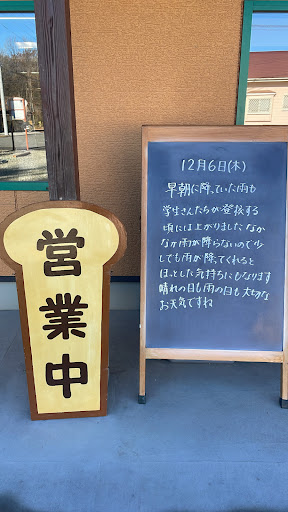 営業中
12月6日(木)
早朝に降っていた雨も
学生さんたちが登校する
頃には上がりました なか
なか雨が降らないので少
しでも雨が降ってくれると
ほっとした気持ちにもなります
晴れの日も雨の日も大切な
お天気ですね